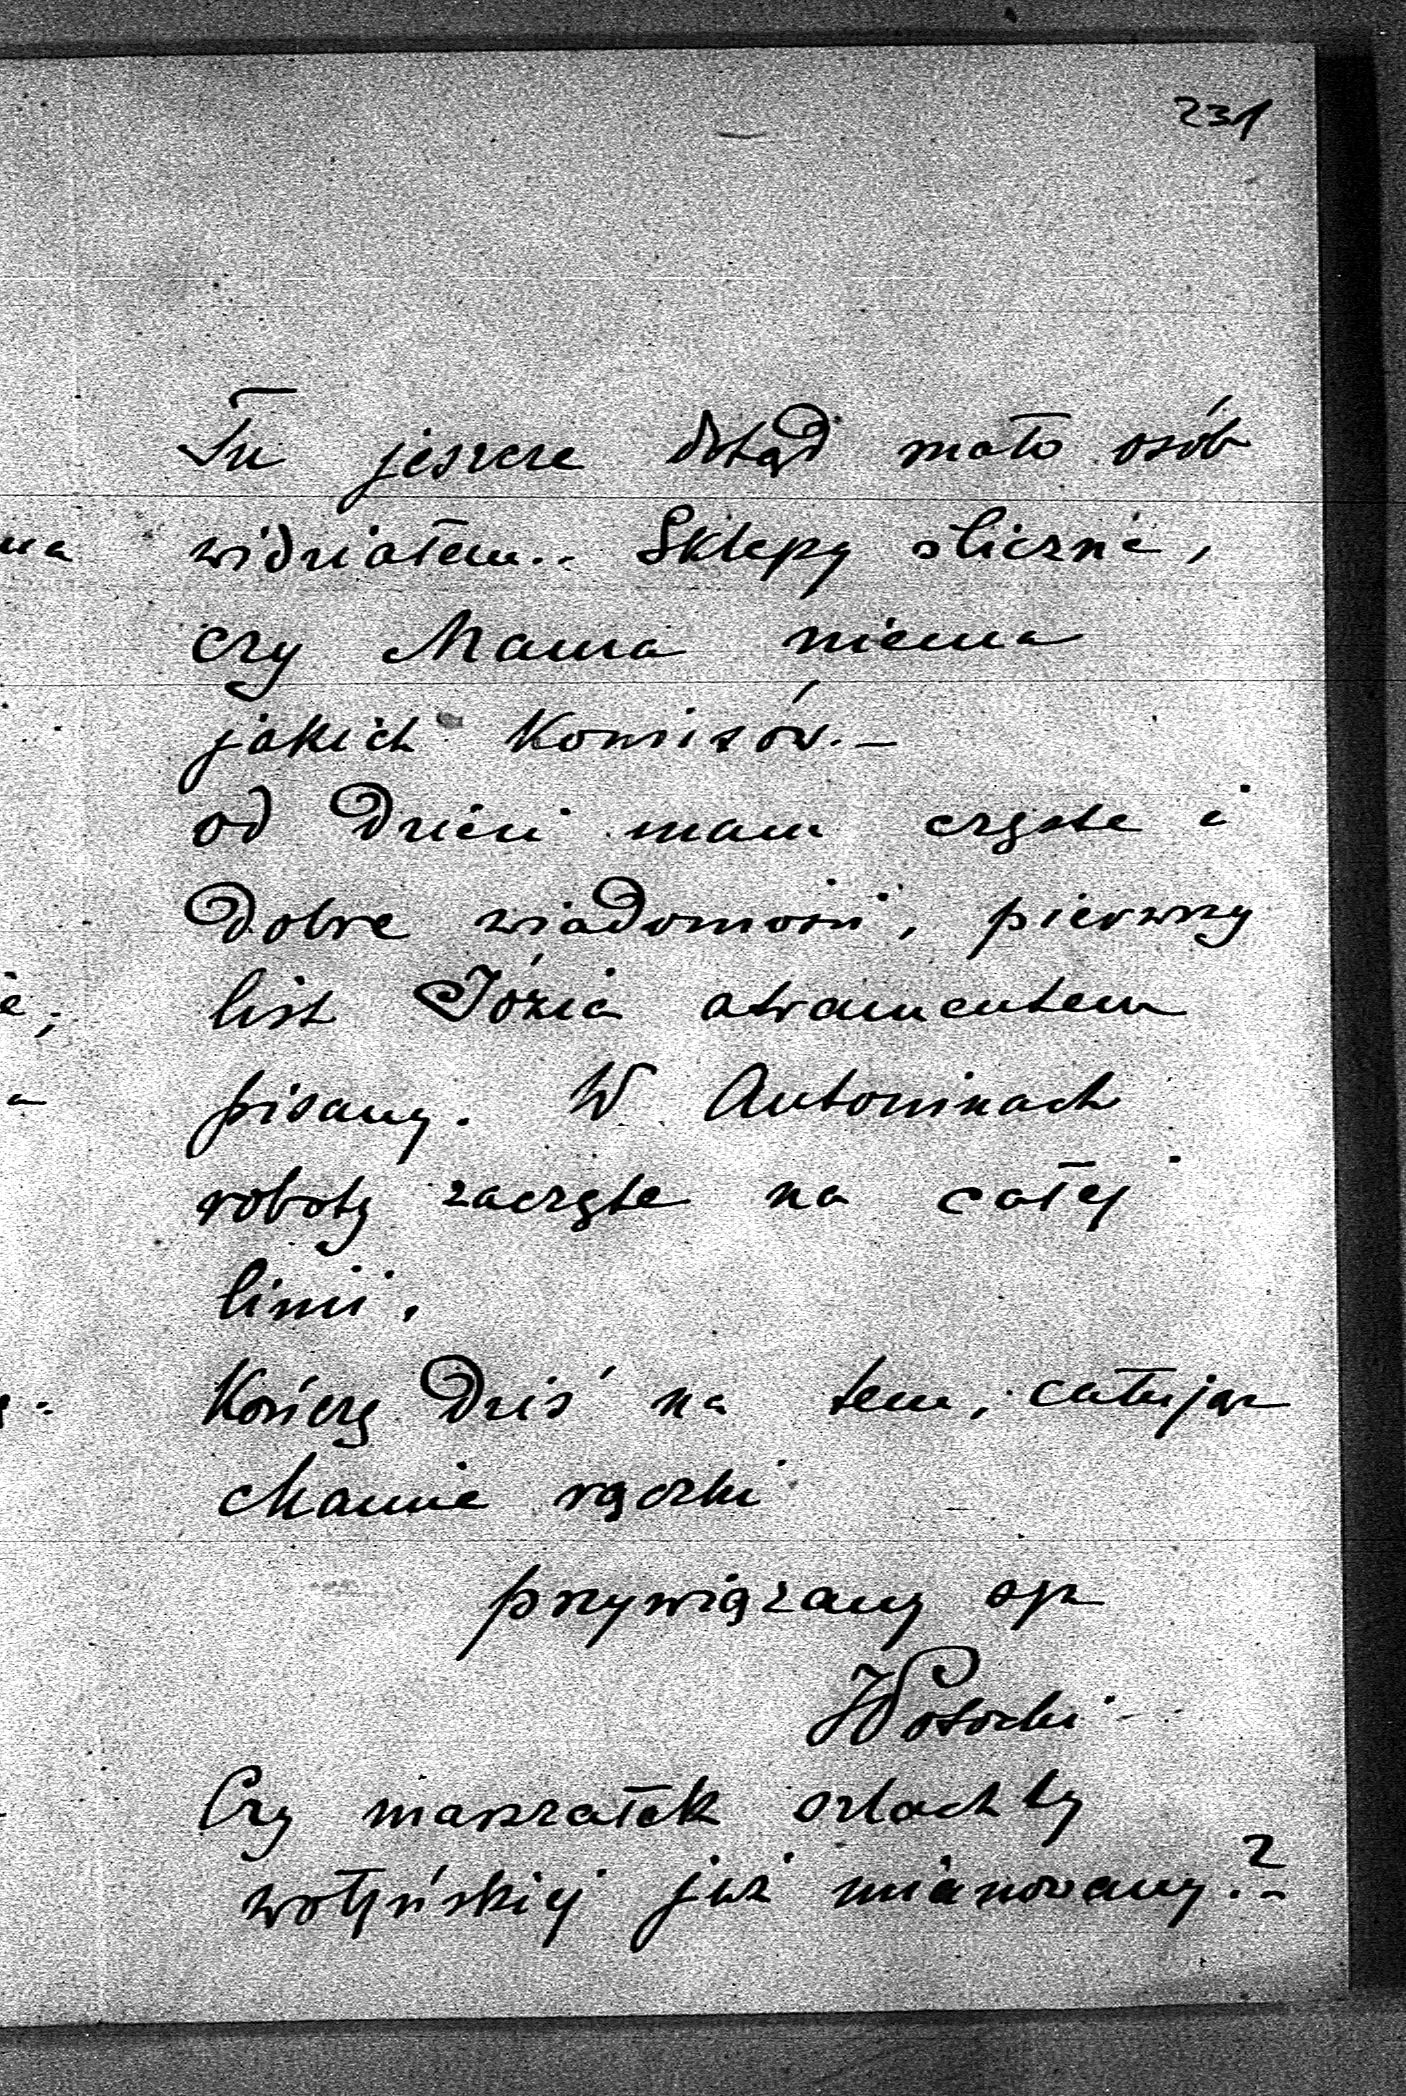 231
Tu jeszcze dotąd mało osób
widziałem.. Sklepy śliczne,
czy Mama niema
jakich Komisów.–
od Dzieci mam częste i
Dobre wiadomości, pierwszy
list Józia atramentem
pisany. W Antoninach
roboty zaczęte na całej
linii.
Kończę Dziś na tem, całując
Mamie rączki
przywiązany syn
JPotocki
Czy marszałek szlachty
wołyńskiej już mianowany?–